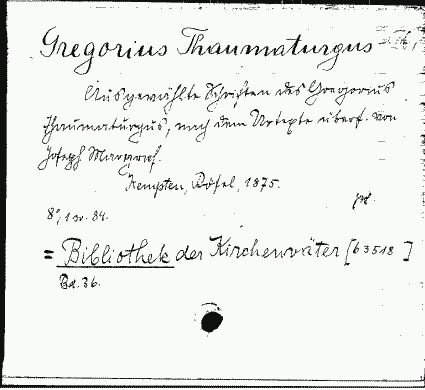 Gregorius Thaumaturgus
Ausgewählte Schriften des Gregorius
Thaumaturgus, nach dem Urtexte übers. von
Joseph Margraf.
Kempten, Kösel, 1875.
8°, 1 w. 84.
= Bibliothek der Kirchenväter [63518]
Bd. 36.